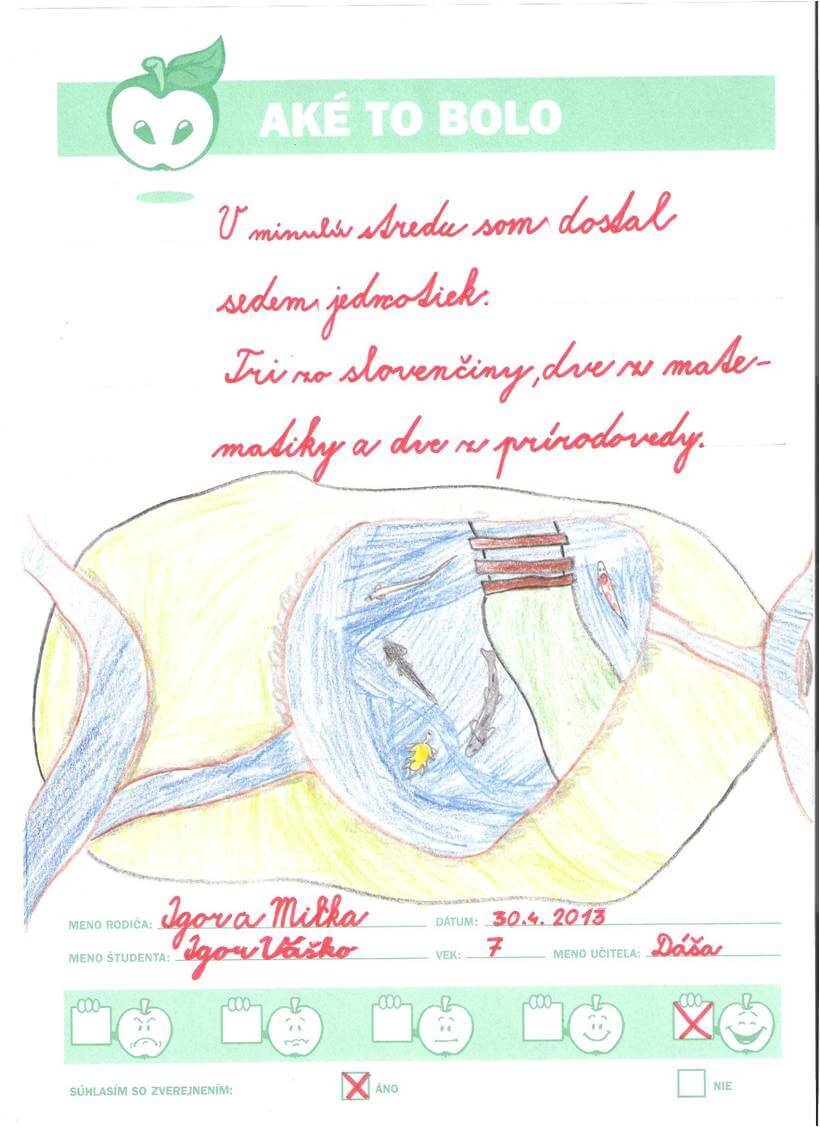 AKÉ TO BOLO
V minulú stredu som dostal
sedem jednotiek.
Tri zo slovenčiny, dve z mate-
matiky a dve z prírodovedy.
MENO RODIČA: Igor a Milka DÁTUM: 30.4. 2013
MENO ŠTUDENTA: Igor Váško VEK: 7 MENO UČITEĽA: Dáša
SÚHLASÍM SO ZVEREJNENÍM: ÁNO NIE